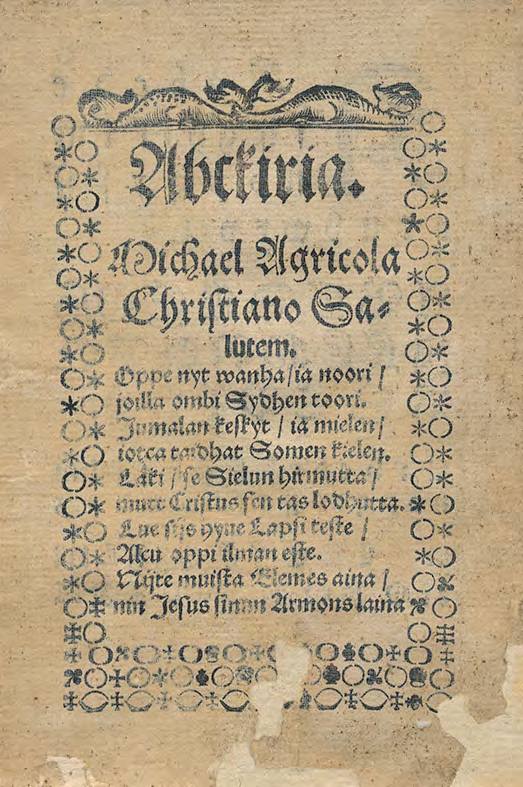 Abckiria.
Michael Agricola
Christiano Sa⸗
lutem.
Oppe nyt wanha / ia noori /
joilla ombi Sydhen toori.
Jumalan keskyt / iä mielen /
iotca taidhat Somen kielen.
Laki / se Sielun hirmutta /
mutt Cristus sen tas lodhutta.
Lue sijs hyue Lapsi teste /
Alcu oppi ilman este.
Nijte muista Elemes aina /
nin Jesus sinun Armons laina